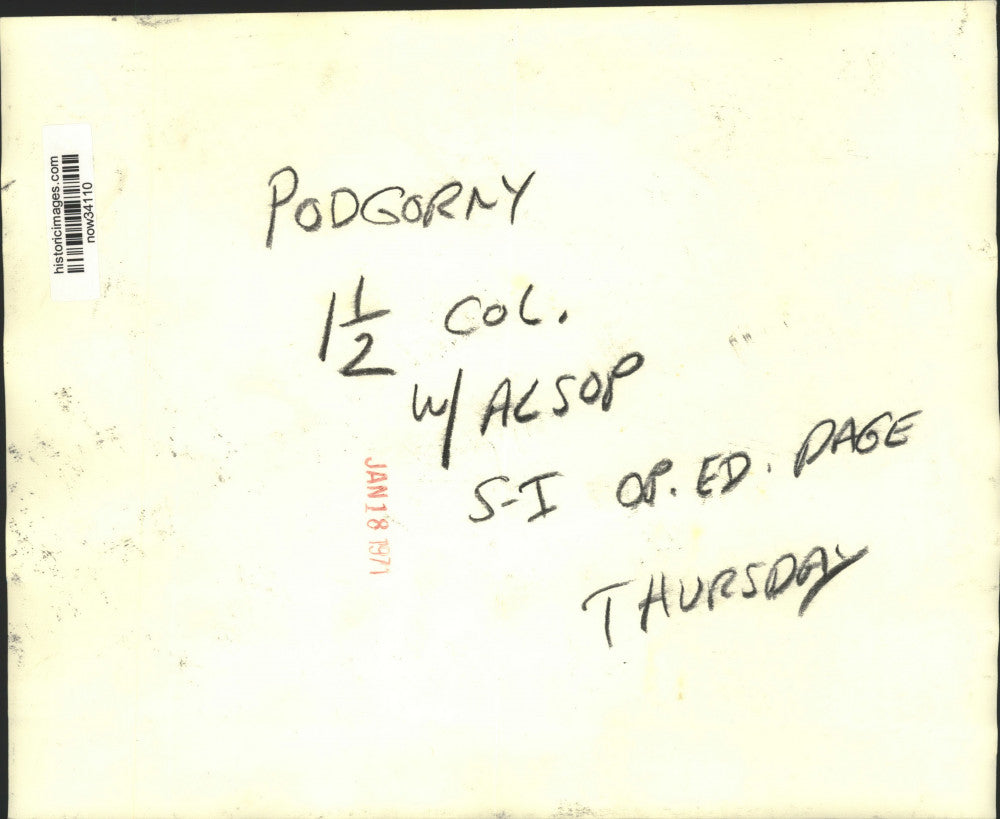 historicimages.com
now34110
PODGORNY
1 1/2 COL.
W/ ALSOP
S-I OP. ED. PAGE
THURSDAY
JAN 18 1971